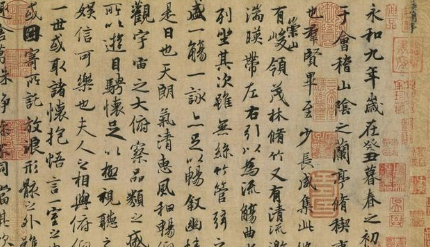 永和九年歲在癸丑暮春之初
于會稽山陰之蘭亭脩禊
也羣賢畢至少長咸集此
有崇山峻領茂林脩竹又有清流激
湍暎帶左右引以為流觴曲
列坐其次雖無絲竹管弦之
盛一觴一詠亦足以暢叙幽
是日也天朗氣清惠風和暢仰
觀宇宙之大俯察品類之盛
所以遊目騁懷足以極視聽之
娛信可樂也夫人之相與俯仰
一世或取諸懷抱悟言一室之
或因寄所託放浪形骸之外雖
萬殊靜躁不同當其